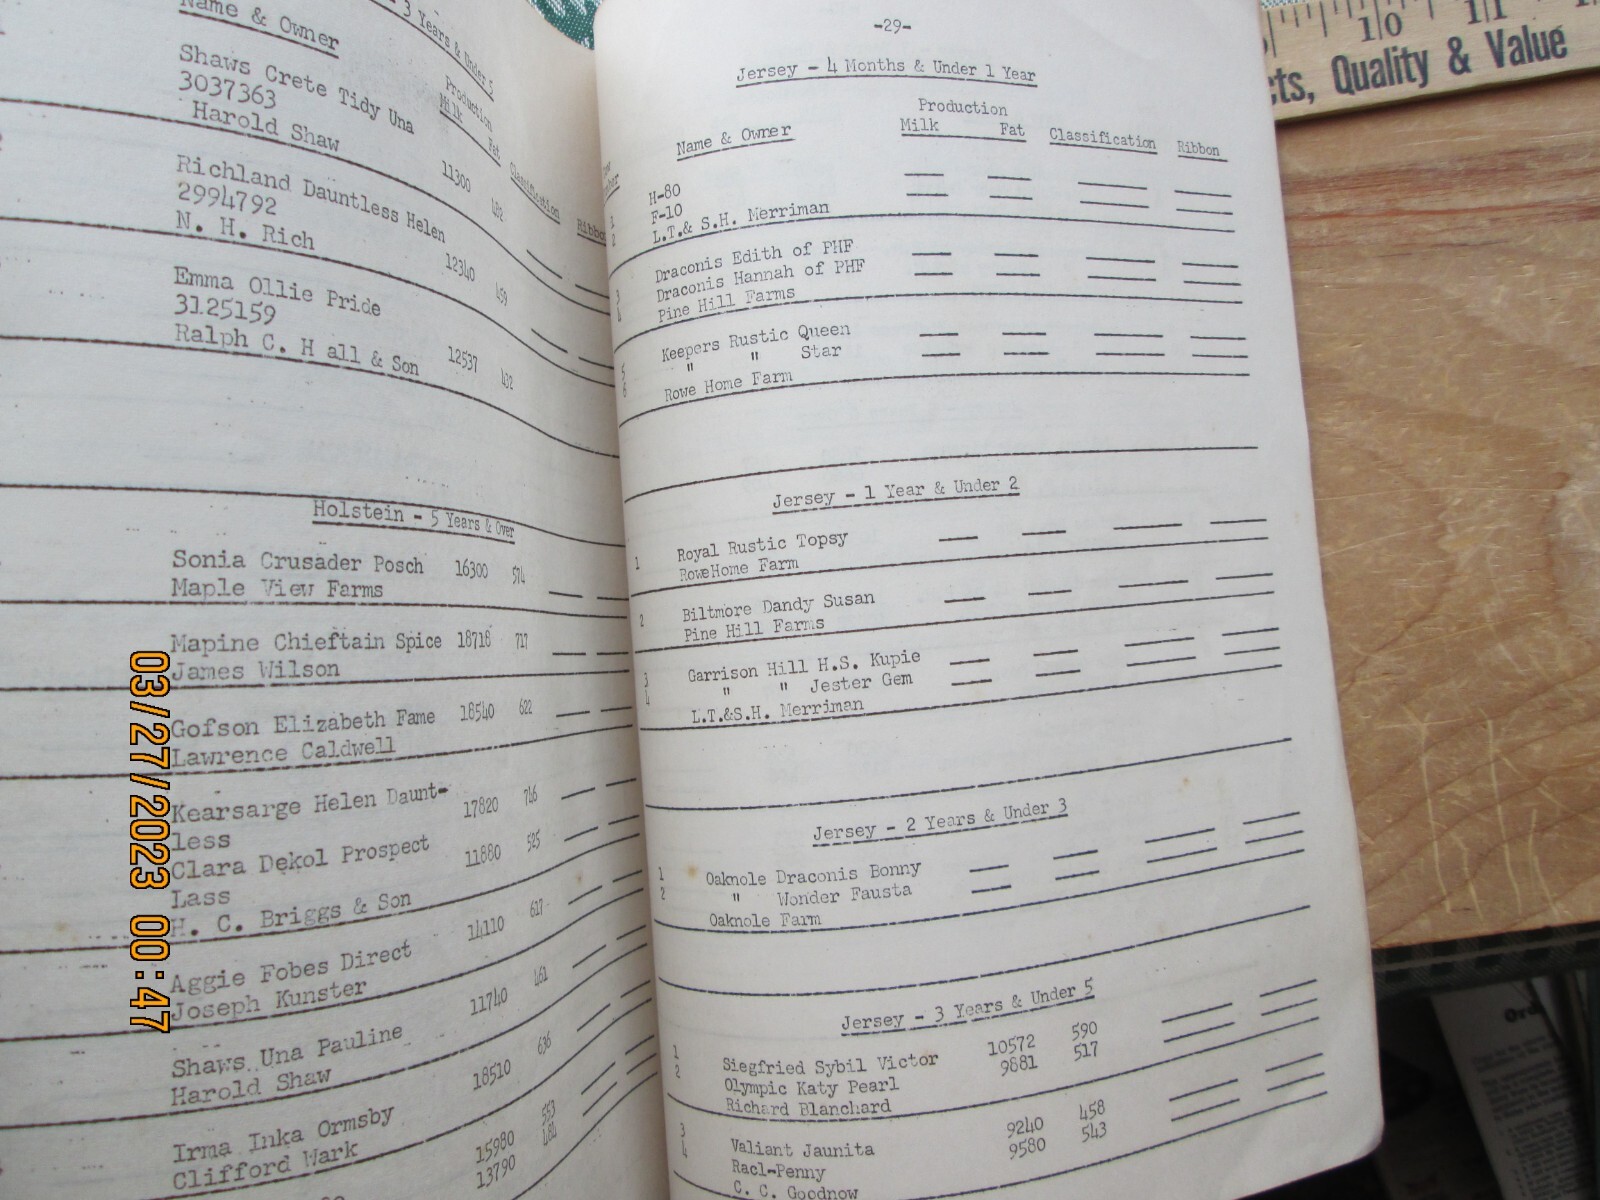 - 3 Years & Under 5
Name & Owner
Production
Milk Fat Classification Ribbon
Shaws Crete Tidy Una 11300 482
3037363
Harold Shaw
Richland Dauntless Helen 12340 459
2994792
N. H. Rich
Emma Ollie Pride 12537 402
3125159
Ralph C. H all & Son
Holstein - 5 Years & Over
Sonia Crusader Posch 16300 574
Maple View Farms
Mapine Chieftain Spice 18716 717
James Wilson
Gofson Elizabeth Fame 18540 622
Lawrence Caldwell
Kearsarge Helen Daunt- 17820 746
less
Clara Dekol Prospect 11880 525
Lass
H. C. Briggs & Son
Aggie Fobes Direct 14110 617
Joseph Kunster
Shaws Una Pauline 11740 461
Harold Shaw
Irma Inka Ormsby 18510 636
Clifford Wark
15980 553
13790 484
-29-
Jersey - 4 Months & Under 1 Year
Production
Name & Owner Milk Fat Classification Ribbon
1 H-80
2 F-10
L.T.& S.H. Merriman
3 Draconis Edith of PHF
4 Draconis Hannah of PHF
Pine Hill Farms
5 Keepers Rustic Queen
6 " " Star
Rowe Home Farm
Jersey - 1 Year & Under 2
1 Royal Rustic Topsy
RoweHome Farm
2 Biltmore Dandy Susan
Pine Hill Farms
3 Garrison Hill H.S. Kupie
4 " " Jester Gem
L.T.&S.H. Merriman
Jersey - 2 Years & Under 3
1 Oaknole Draconis Bonny
2 " Wonder Fausta
Oaknole Farm
Jersey - 3 Years & Under 5
1 Siegfried Sybil Victor 10572 590
2 Olympic Katy Pearl 9881 517
Richard Blanchard
3 Valiant Jaunita 9240 458
4 Racl-Penny 9580 543
C. C. Goodnow
10 11
cts, Quality & Value
03/27/2023 00:47